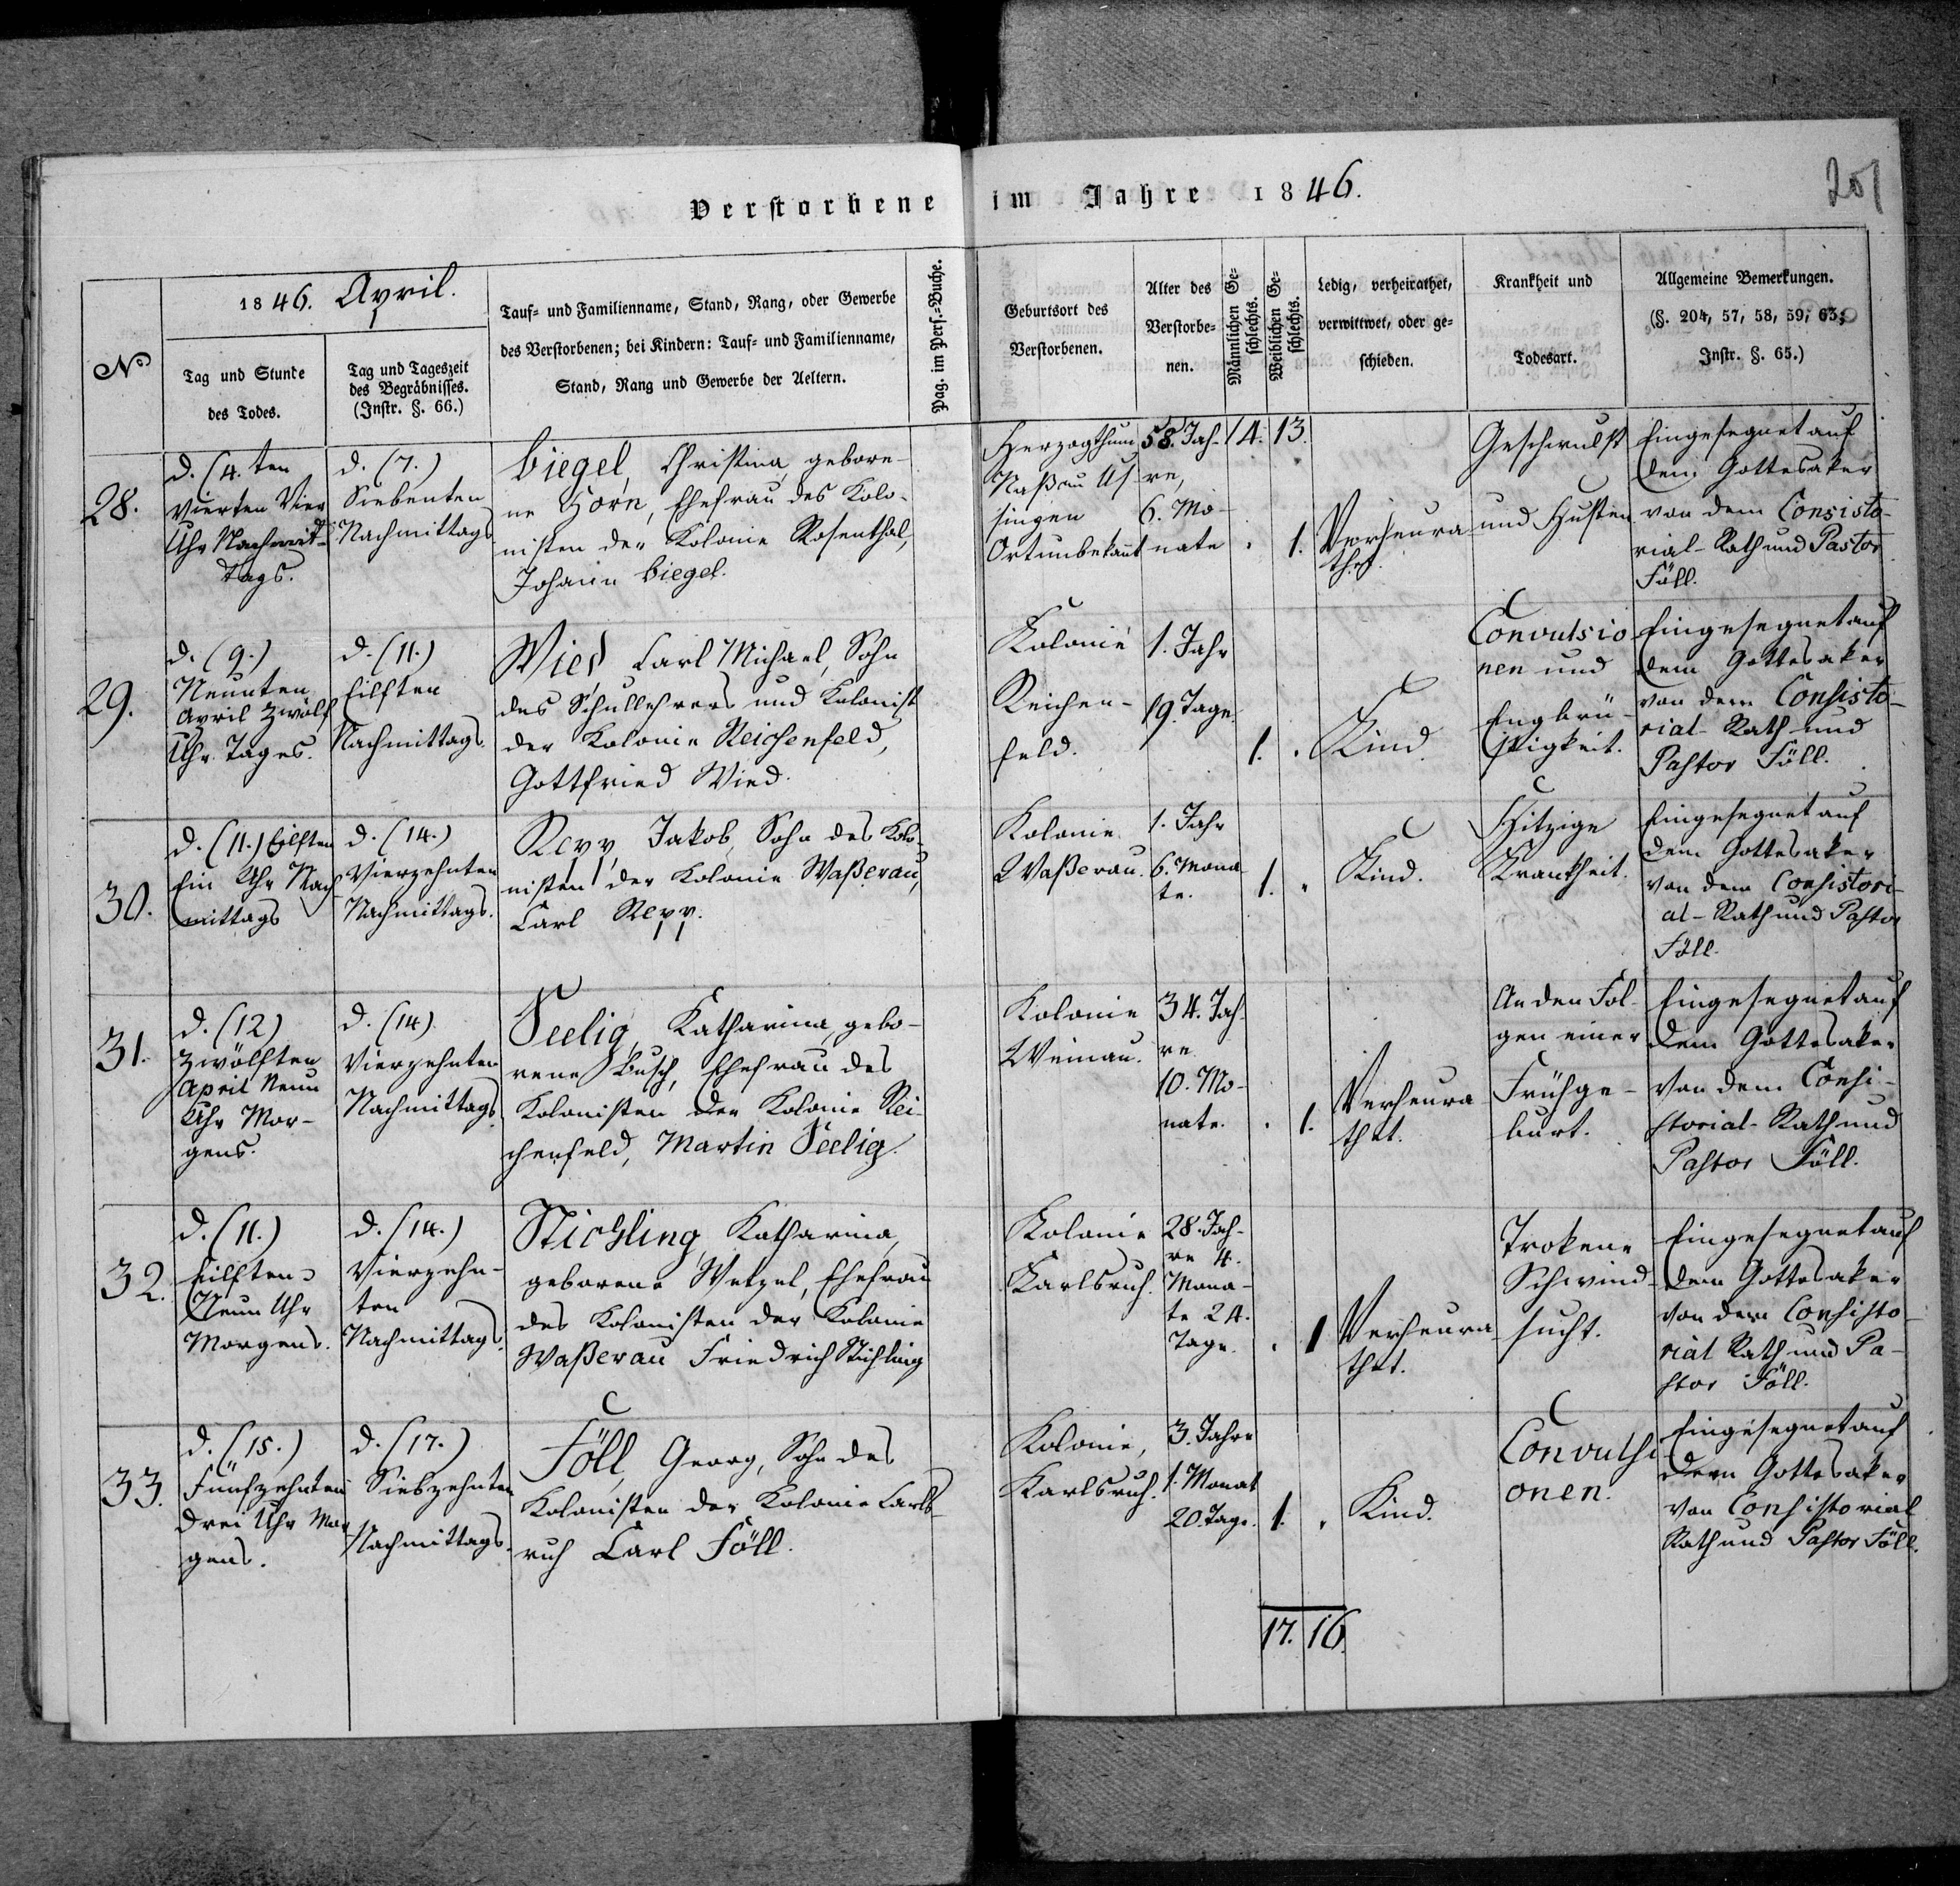 Verstorbene im Jahre 1846.
201
No
1846. April.
Tag und Stunde
des Todes.
Tag und Tageszeit
des Begräbnisses.
(Instr. §. 66.)
Tauf- und Familienname, Stand, Rang, oder Gewerbe
des Verstorbenen; bei Kindern: Tauf- und Familienname,
Stand, Rang und Gewerbe der Aeltern.
Pag. im Pers.-Buche.
Geburtsort des
Verstorbenen.
Alter des
Verstorbe-
nen.
Männlichen Ge-
schlechts.
Weiblichen Ge-
schlechts.
Ledig, verheirathet,
verwittwet, oder ge-
schieden.
Krankheit und
Todesart.
Allgemeine Bemerkungen.
(§. 204, 57, 58, 59, 63;
Instr. §. 65.)
14. 13.
28.
d. (4.ten
Vierten Vier
Uhr Nachmit-
tags.
d. (7.)
Siebenten
Nachmittags
Biegel, Christina, gebore-
ne Horn, Ehefrau des Kolo-
nisten der Kolonie Rosenthal,
Johann Biegel.
Herzogthum
Naßau Us-
singen
Ort unbekannt
58. Jah-
re,
6. Mo-
nate
. 1.
Verheura-
thet.
Geschwulst
und Husten
Eingesegnet auf
dem Gottesaker
von dem Consisto-
rial-Rath und Pastor
Föll.
29.
d. (9.)
Neunten
April Zwölf
Uhr Tages.
d. (11.)
Eilften
Nachmittags.
Wied, Carl Michael, Sohn
des Schullehrers und Kolonist
der Kolonie Reichenfeld,
Gottfried Wied.
Kolonie
Reichen-
feld.
1. Jahr
19. Tage.
1. .
Kind.
Convulsio
nen und
Engbrü-
stigkeit.
Eingesegnet auf
dem Gottesaker
von dem Consisto-
rial-Rath und
Pastor Föll.
30.
d. (11.) Eilften
Ein Uhr Nach-
mittags
d. (14.)
Vierzehnten
Nachmittags.
Repp, Jakob, Sohn des Kolo-
nisten der Kolonie Waßerau,
Carl Repp.
Kolonie
Waßerau.
1. Jahr
6. Mona-
te.
1. .
Kind.
Hitzige
Krankheit.
Eingesegnet auf
dem Gottesaker
von dem Consistori-
al-Rath und Pastor
Föll.
31.
d. (12)
Zwölften
April Neun
Uhr Mor-
gens.
d. (14)
Vierzehnten
Nachmittags.
Seelig, Katharina, gebo-
rene Busch, Ehefrau des
Kolonisten der Kolonie Rei-
chenfeld, Martin Seelig.
Kolonie
Weinau.
34. Jah-
re
10. Mo-
nate.
. 1.
Verheura
thet.
An den Fol-
gen einer
Frühge-
burt.
Eingesegnet auf
dem Gottesaker
von dem Consi-
storial-Rath und
Pastor Föll.
32.
d. (11.)
Eilften
Neun Uhr
Morgens.
d. (14.)
Vierzehn-
ten
Nachmittags.
Stichling, Katharina,
geborene Wetzel, Ehefrau
des Kolonisten der Kolonie
Waßerau Friedrich Stichling
Kolonie
Karlsruh.
28. Jah-
re 4.
Mona-
te 24.
Tage.
. 1
Verheura-
thet.
Trokene
Schwind-
sucht.
Eingesegnet auf
dem Gottesaker
von dem Consisto-
rial Rath und Pa-
stor Föll.
33.
d. (15.)
Fünfzehnten
Drei Uhr Mor
gens.
d. (17.)
Siebzehnten
Nachmittags.
Föll, Georg, Sohn des
Kolonisten der Kolonie Carls-
ruh Carl Föll.
Kolonie,
Karlsruh.
3. Jahre
1. Monat
20. Tage.
1. .
Kind.
Convulsi
onen.
Eingesegnet auf
dem Gottesaker
von Consistorial
Rath und Pastor Föll.
17. 16.